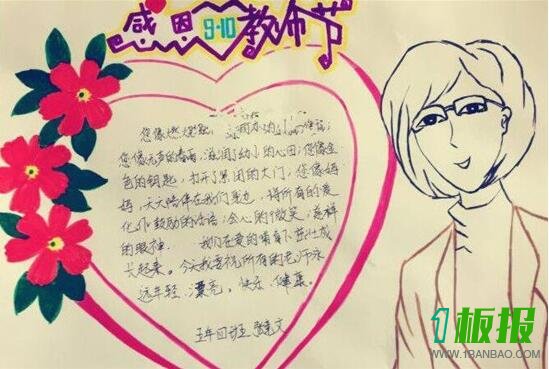 感恩 9·10 教师节
您像燃烧
您像无声的春雨,滋润了幼小的心田;您像金
色的钥匙,打开了紧闭的大门,您像妈
妈,天天陪伴在我们身边,将所有的爱
化作鼓励的话语,会心的微笑,慈祥
的眼神。 我们在爱的哺育下茁壮成
长起来。今天我要祝所有的老师永
远年轻,漂亮。快乐,健康。
五年四班
1板报
WWW.1BANBAO.COM